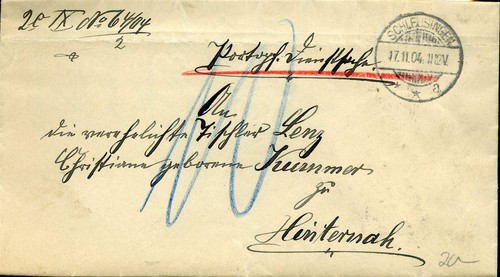 2c IX No 64/04
2
SCHLEUSINGEN
17.11.04. 11-12V.
* * a
Portopfl. Dienstsache.
An
die verehelichte Tischler Lenz
Christiane geborene Kummer
zu
Hinternah.